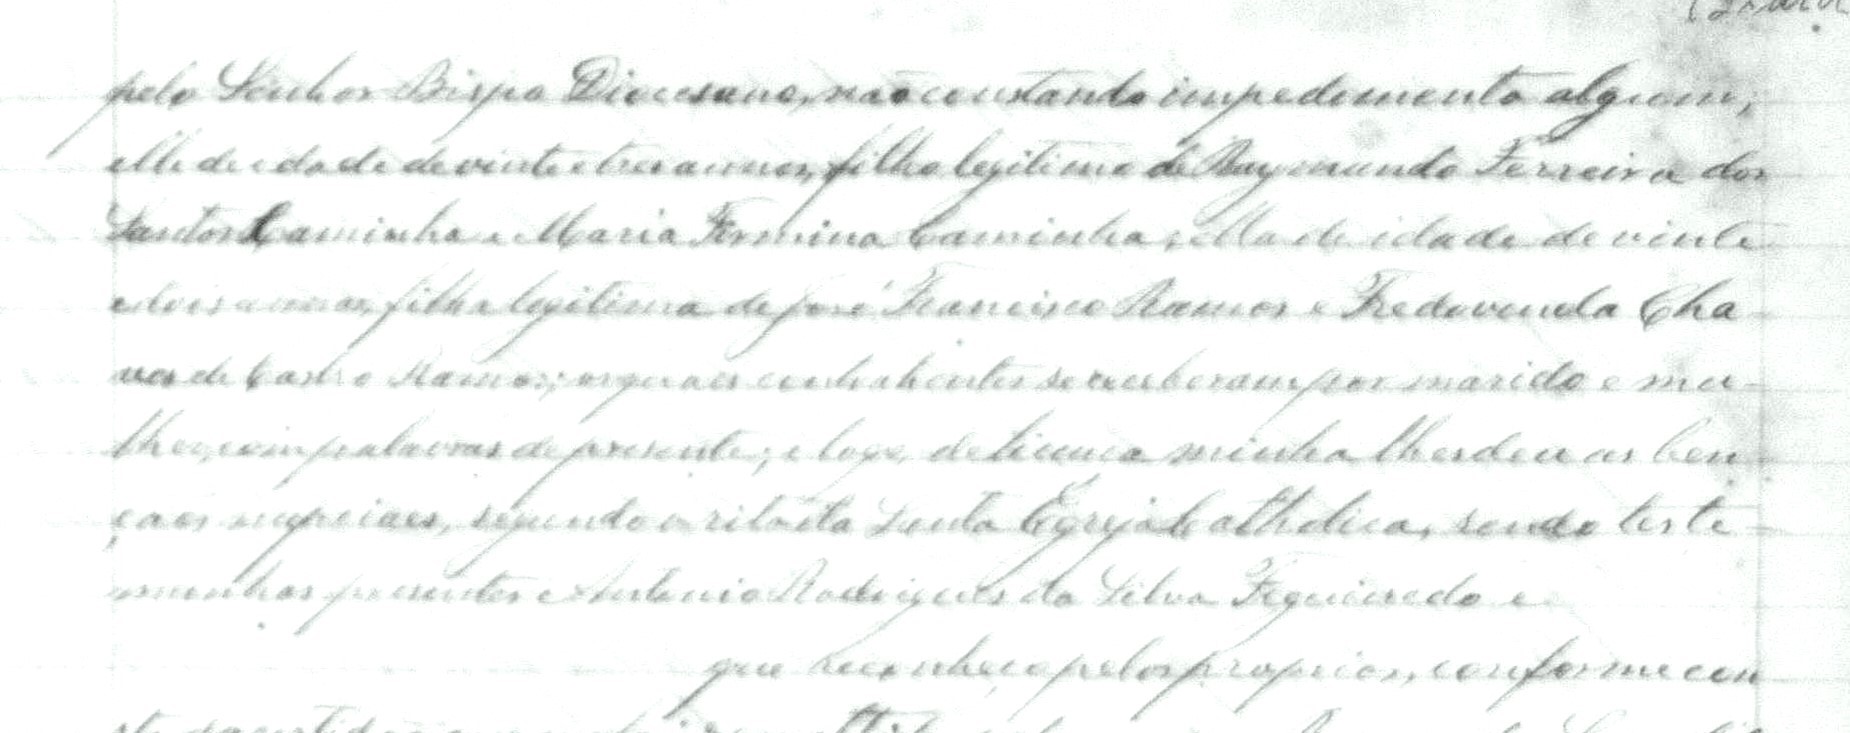 pelo Senhor Bispo Diocesano, não constando impedimento algum;
elle de idade de vinte e tres annos, filho legitimo de Raymundo Ferreira dos
Santos Caminha e Maria Firmina Caminha; ella de idade de vinte
e dois annos, filha legitima de José Francisco Ramos e Cha-
ves de Castro Ramos; os quaes se receberam por marido e mu-
lher, com palavras de presente; e logo, de licença minha lhes deu as ben-
çaos nupciaes, segundo o rito da Santa Egreja Catholica, sendo teste-
munhas presentes Antonio Rodrigues da Silva Figueiredo e
que reconheço pelos proprios, conforme con